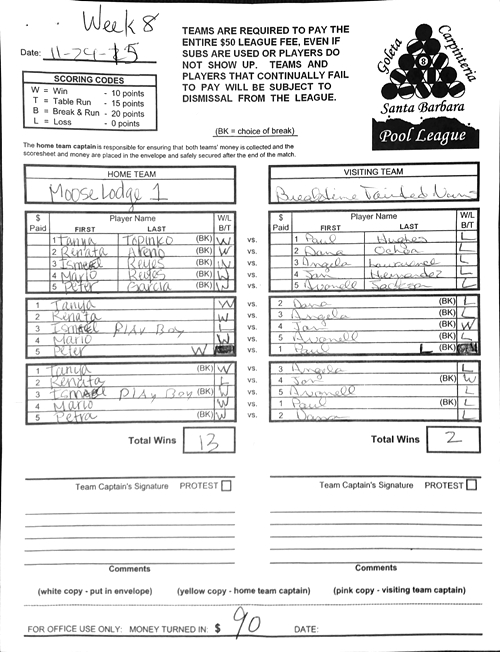 Week 8
Date: 11-29-
TEAMS ARE REQUIRED TO PAY THE
ENTIRE $50 LEAGUE FEE, EVEN IF
SUBS ARE USED OR PLAYERS DO
NOT SHOW UP. TEAMS AND
PLAYERS THAT CONTINUALLY FAIL
TO PAY WILL BE SUBJECT TO
DISMISSAL FROM THE LEAGUE.
(BK = choice of break)
SCORING CODES
W = Win - 10 points
T = Table Run - 15 points
B = Break & Run - 20 points
L = Loss - 0 points
Goleta
Carpinteria
8
Santa Barbara
Pool League
The home team captain is responsible for ensuring that both teams' money is collected and the
scoresheet and money are placed in the envelope and safely secured after the end of the match.
HOME TEAM VISITING TEAM
Moose Lodge 1 Breaktime Tainted
$ Paid Player Name FIRST LAST W/L B/T $ Paid Player Name FIRST LAST W/L B/T
1 Tanya Topinko (BK) W vs. 1 Paul Hughes L
2 Renata Areno (BK) W vs. 2 Dana Ochoa L
3 Ismael Reyes (BK) W vs. 3 Angela Lawrence L
4 Mario Reyes (BK) W vs. 4 Jan Hernandez L
5 Peter Garcia (BK) W vs. 5 Avonell Jackson L
1 Tanya W vs. 2 Dana (BK) L
2 Renata W vs. 3 Angela (BK) L
3 Ismael Play Boy L vs. 4 Jan (BK) W
4 Mario W vs. 5 Avonell (BK) L
5 Peter W vs. 1 Paul L (BK)
1 Tanya (BK) W vs. 3 Angela L
2 Renata (BK) L vs. 4 Jan (BK) W
3 Ismael Play Boy (BK) W vs. 5 Avonell L
4 Mario W vs. 1 Paul (BK) L
5 Petra (BK) W vs. 2 Dana L
Total Wins 13 Total Wins 2
Team Captain's Signature PROTEST Team Captain's Signature PROTEST
Comments Comments
(white copy - put in envelope) (yellow copy - home team captain) (pink copy - visiting team captain)
FOR OFFICE USE ONLY: MONEY TURNED IN: $ 90 DATE: